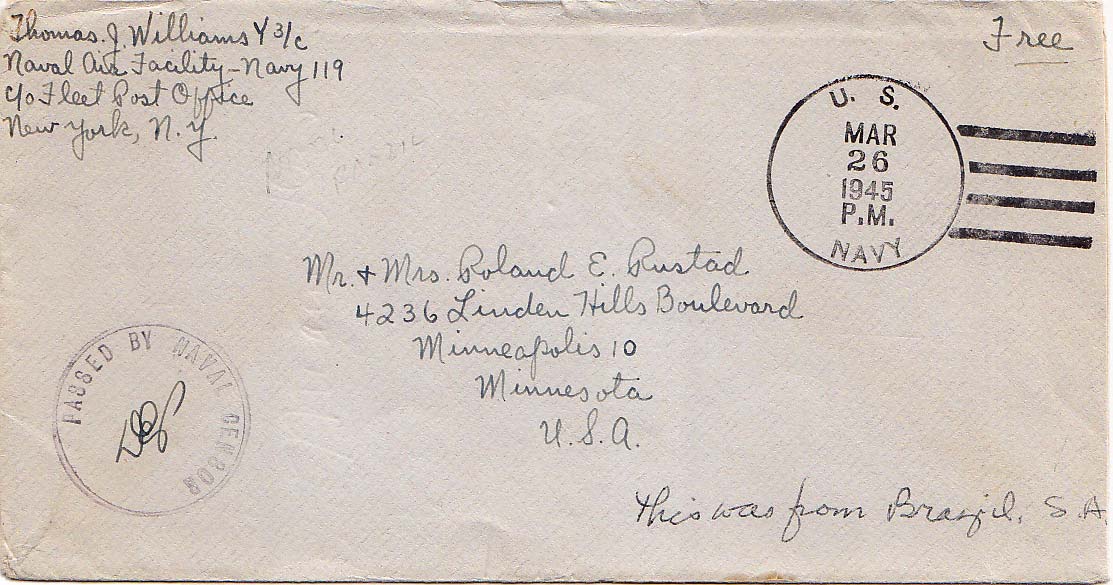 Thomas. J. Williams Y 3/c
Naval Air Facility - Navy 119
c/o Fleet Post Office
New York, N.Y.
Free
U. S.
MAR
26
1945
P.M.
NAVY
Mr. + Mrs. Roland E. Rustad
4236 Linden Hills Boulevard
Minneapolis 10
Minnesota
U.S.A.
PASSED BY NAVAL CENSOR
This was from Brazil, S.A.